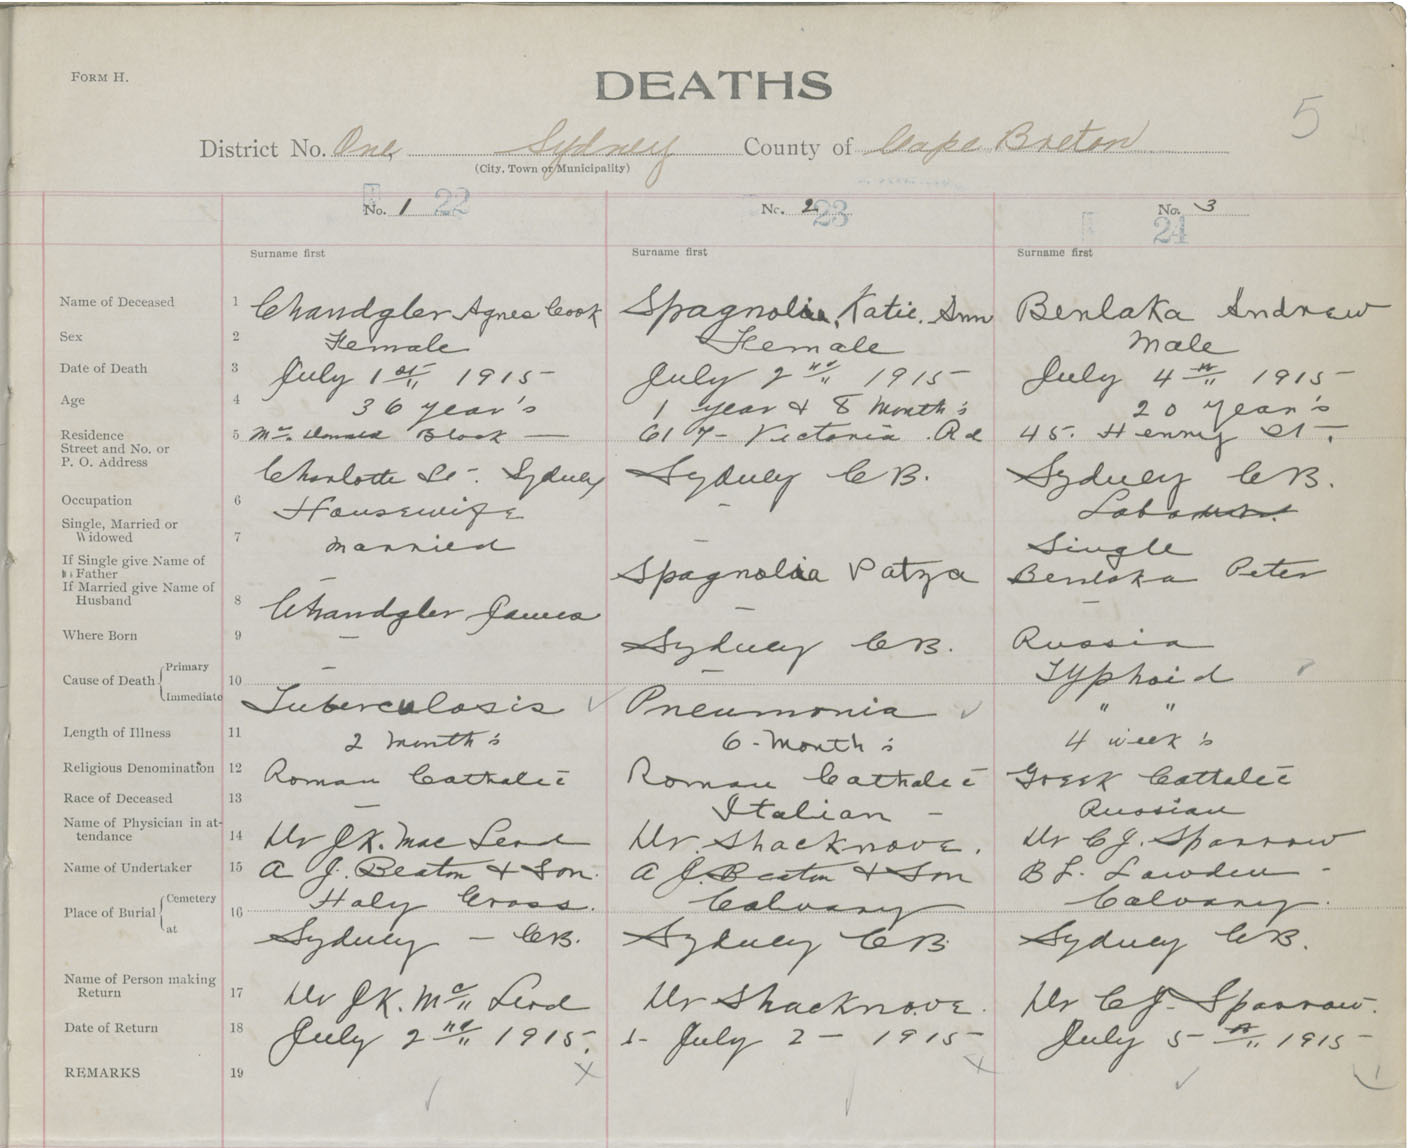 FORM H.
DEATHS
5
District No. One Sydney County of Cape Breton
(City, Town or Municipality)
No. 1 22 No. 2 23 No. 3 24
Surname first Surname first Surname first
Name of Deceased 1 Chandgler Agnes Cook Spagnolia, Katie. Ann Benlaka Andrew
Sex 2 Female Female Male
Date of Death 3 July 1st 1915 July 2nd 1915 July 4th 1915
Age 4 36 year's 1 year & 8 Month's 20 year's
Residence Street and No. or P. O. Address 5 Mc Donald Block — 617 - Victoria Rd 45. Henry St.
Charlotte St. Sydney Sydney C B. Sydney C B.
Occupation 6 Housewife - Labourer
Single, Married or Widowed 7 Married - Single
If Single give Name of Father - Spagnolia Patza Benlaka Peter
If Married give Name of Husband 8 Chandgler James - -
Where Born 9 - Sydney C B. Russia
Cause of Death Primary 10 - - Typhoid
Immediate Tuberculosis Pneumonia " "
Length of Illness 11 2 Month's 6 - Month's 4 week's
Religious Denomination 12 Roman Cathalic Roman Cathalic Greek Cathalic
Race of Deceased 13 - Italian - Russian
Name of Physician in attendance 14 Dr J.K. Mac Leod Dr. Shacknove. Dr C J. Sparrow
Name of Undertaker 15 A J. Beaton & Son. A J. Beaton & Son B L. Lowden -
Place of Burial Cemetery 16 Holy Cross. Calvary Calvary.
at Sydney - C.B. Sydney C B Sydney C B.
Name of Person making Return 17 Dr J K. Mc Leod Dr Shacknove. Dr C J. Sparrow.
Date of Return 18 July 2nd 1915. July 2 - 1915 July 5th 1915
REMARKS 19